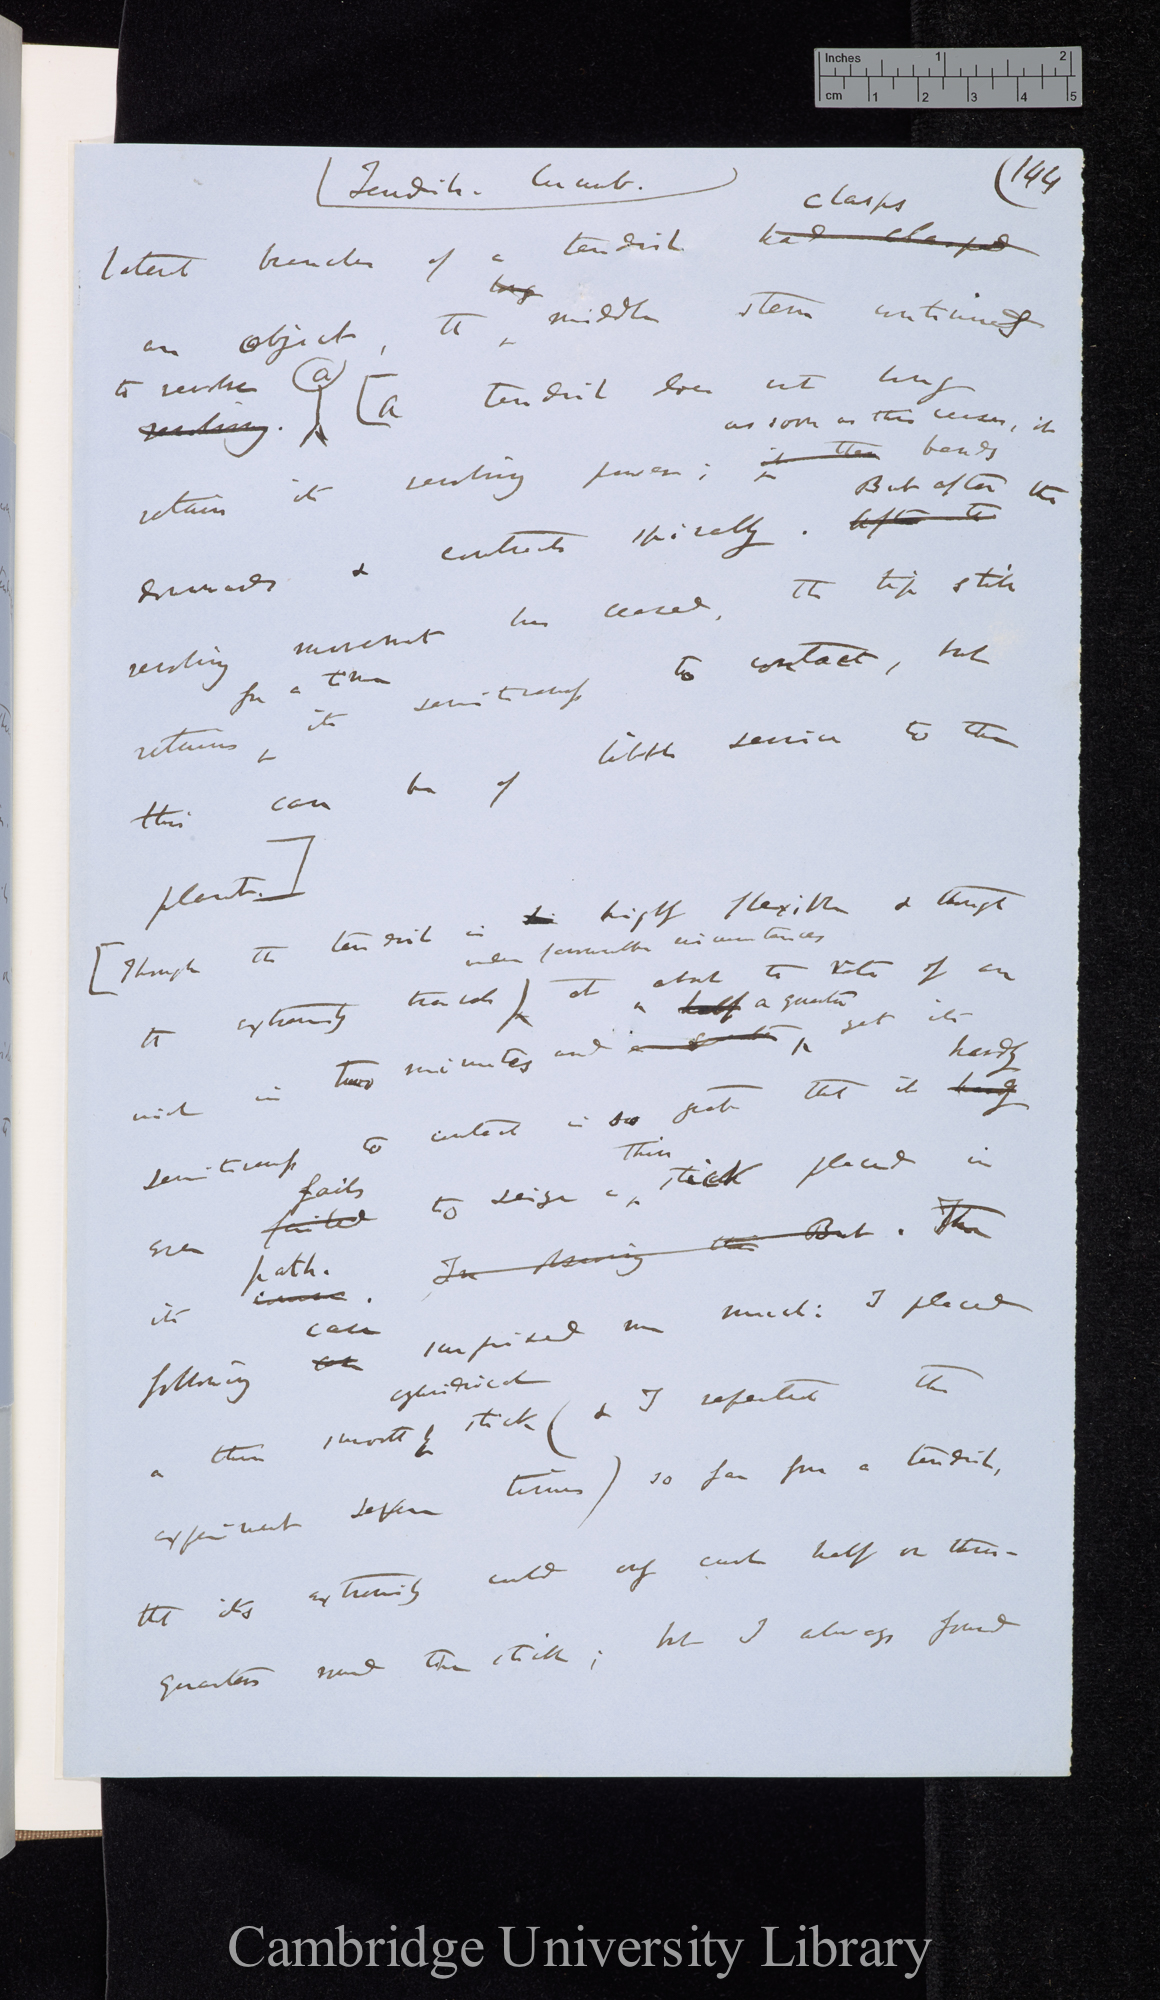 Inches 1 2
cm 1 2 3 4 5
Tendrils. Cucurb.
(144
clasps
lateral branches of a tendril had clasped
long
an object, the middle stem continued
to revolve (a) [A tendril does not long
revolving.
as soon as this ceases, it
retain its revolving power; it then bends
But after the
downwards & contracts spirally. After the
revolving movement has ceased, the tip still
for a time
retains its sensitiveness to contact, but
this can be of little service to the
plant.]
[Though the tendril is highly flexible & though
under favourable circumstances
the extremity travels) at about the rate of an
half a quarter
inch in two minutes and yet its
hardly
sensitiveness to contact is so great that it
thin
fails
even failed to seize a stick placed in
path.
its . In observing this But. The
case
following surprised me much: I placed
cylindrical
a thin smooth stick (& I repeated the
experiment seven times) so far from a tendril,
that its extremity could only curl half or three-
quarters round the stick; but I always found
Cambridge University Library